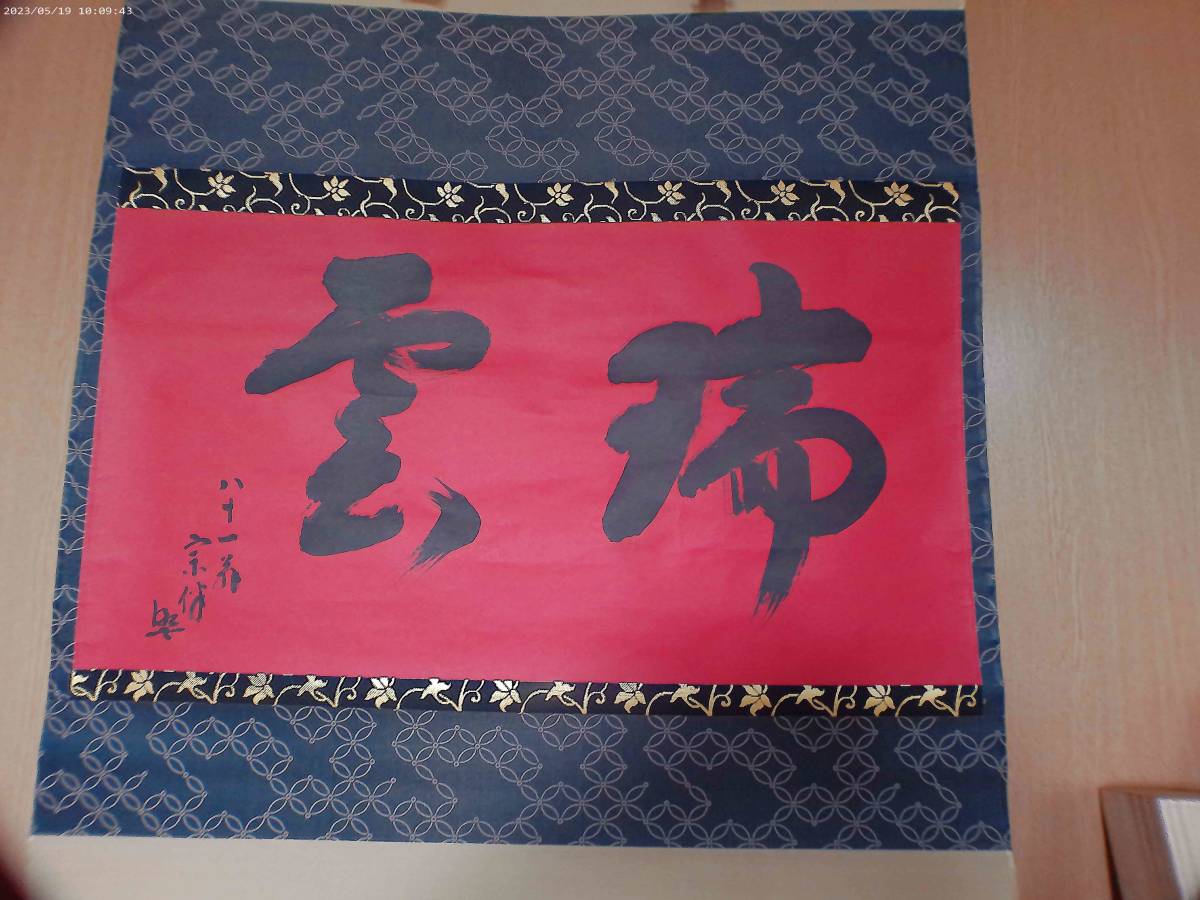 2023/05/19 10:09:43
瑞雲
八十一翁
宗